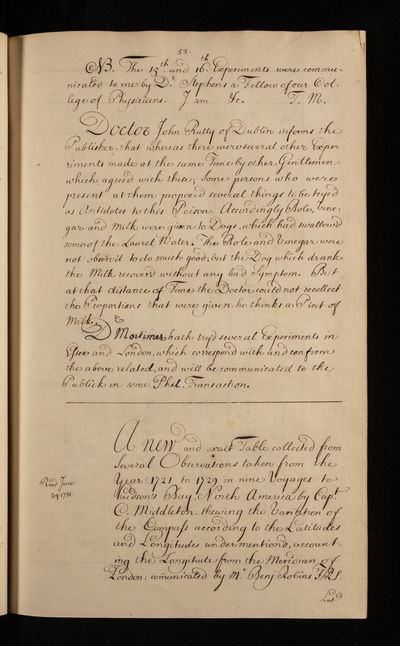 53.
NB. The 15th and 16th Experiments were commu-
nicated to me by Dr. Stephens a Fellow of our Col-
lege of Physicians. I am &c. T. M.
Doctor John Rutty of Dublin informs the
Publisher, that whereas there were several other Exper
riments made at the same Time by other Gentlemen
which agreed with these; some persons who were
present at them propos'd several things to be tryed
as Antidotes to this Poison. Accordingly Bole, Vine-
gar and Milk were given to Dogs, which had swallow'd
some of the Laurel Water. The Bole and Vinegar were
not observ'd to do much good; but the Dog which drank
the Milk recover'd without any bad Symptom. But
at that distance of Time the Doctor could not recollect
the Proportions that were given: he thinks a Pint of
Milk.
Dr Mortimer hath try'd several Experiments in
Essex and London, which correspond with and confirm
the above related, and will be communicated to the
Publick in some Phil. Transaction.
A new and exact Table collected from
several Observations taken from the
Year 1721 to 1729 in nine Voyages to
Hudson's Bay North America by Capt.
C. Middleton: shewing the Variation of
the Compass according to the Latitudes
and Longitudes undermention'd, account-
ing the Longitude from the Meridian of
London: comunicated by Mr. Benj Robins F.R.S.
Read June
24. 1731.
Latd